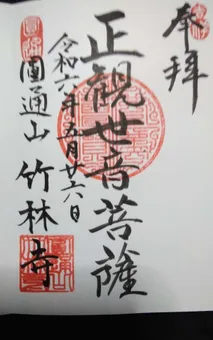 奉拝
正観世音菩薩
令和六年五月廿六日
圓通山 竹林寺